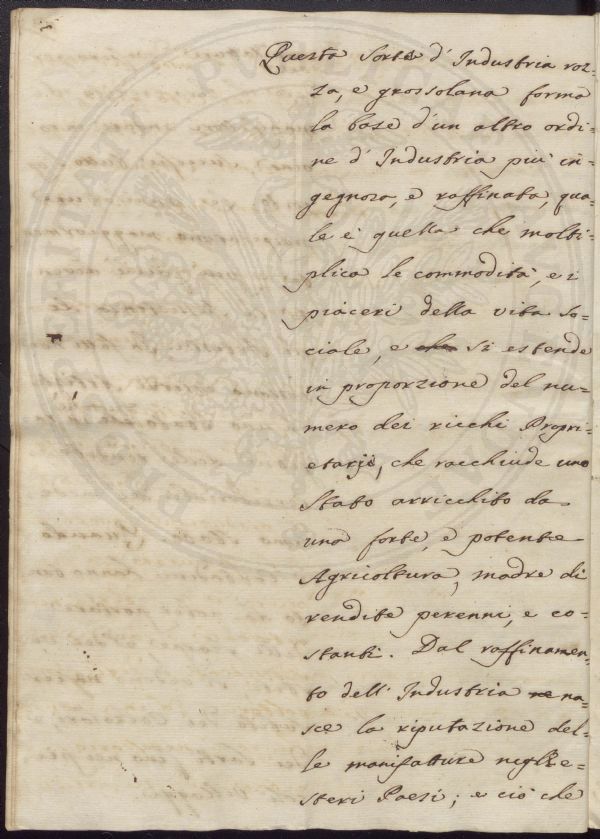 Questa sorte d' Industria roz=
za, e grossolana forma
la base d'un altro ordi=
ne d' Industria più in=
gegnosa, e raffinata, qua=
le è quella che molti=
plica le commodità, e i
piaceri della vita so=
ciale, e che si estende
in proporzione del nu=
mero dei ricchi Propri=
etarj, che racchiude uno
Stato arricchito da
una forte, e potente
Agricoltura, madre di
rendite perenni, e co=
stanti. Dal raffinamen=
to dell' Industria re na=
sce la riputazione del=
le manifatture negli e=
steri Paesi; e ciò che